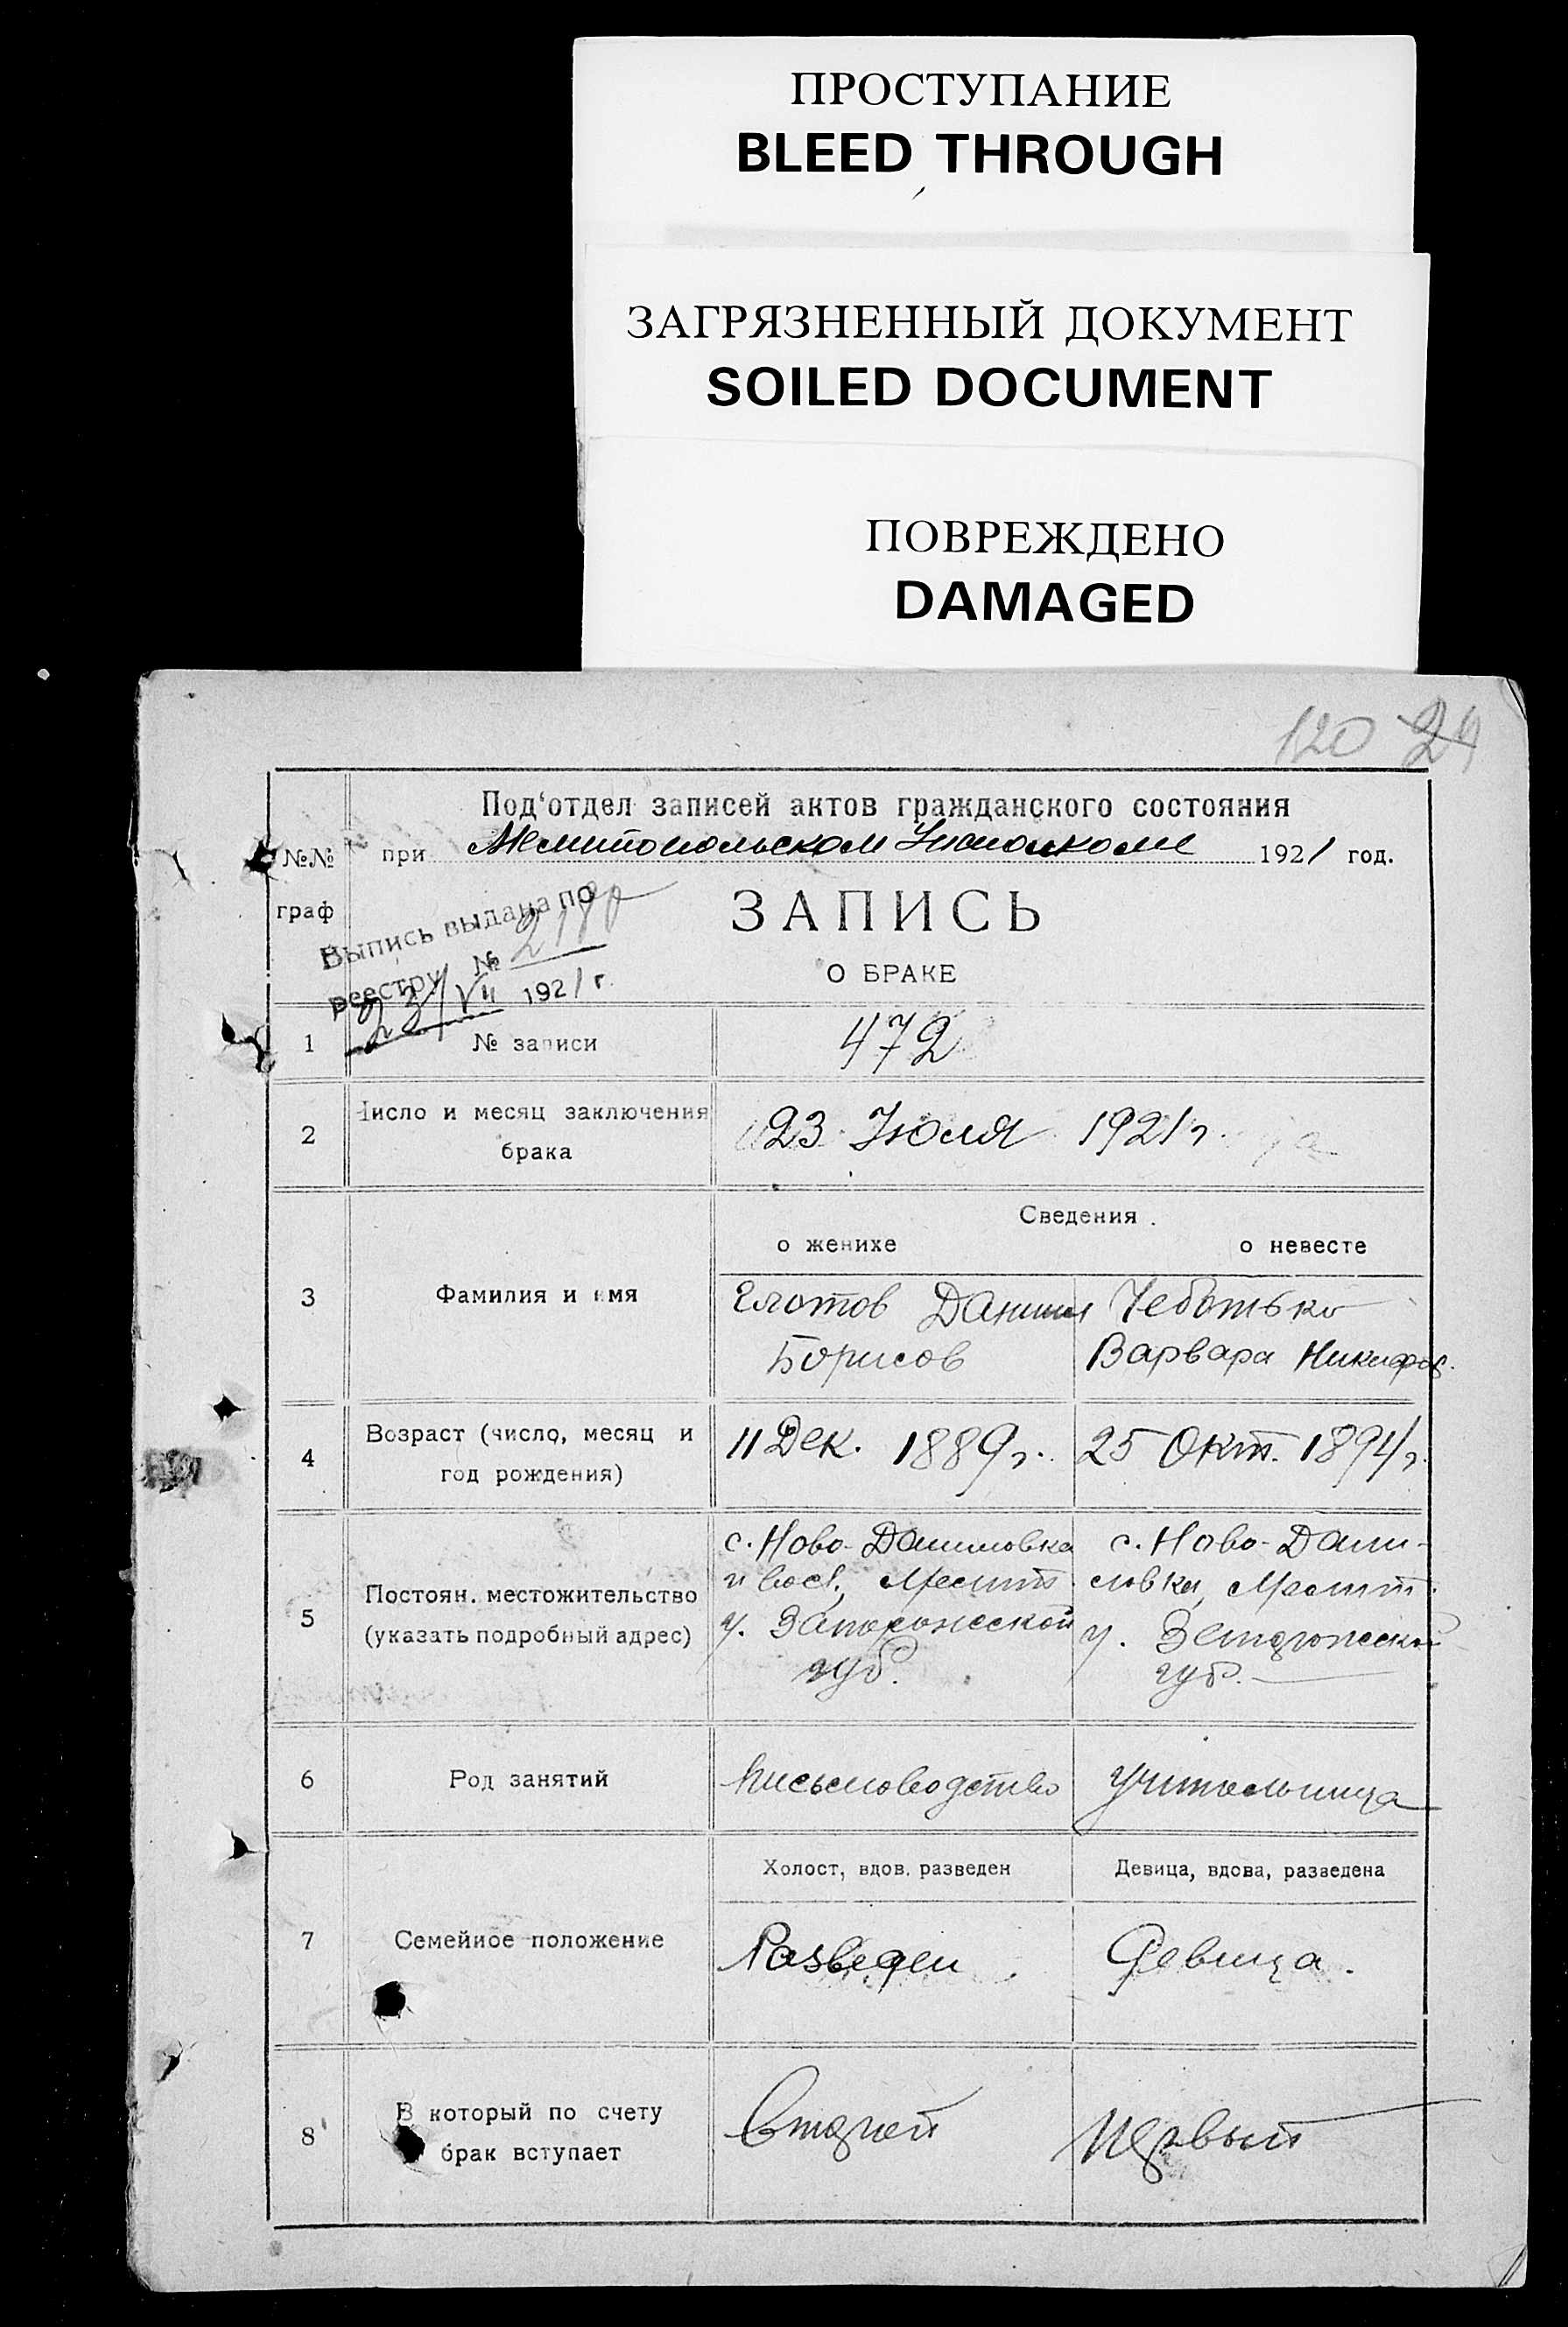 ПРОСТУПАНИЕ
BLEED THROUGH
ЗАГРЯЗНЕННЫЙ ДОКУМЕНТ
SOILED DOCUMENT
ПОВРЕЖДЕНО
DAMAGED
120 24
Под'отдел записей актов гражданского состояния
№№ при Мелитопольском 1921 год.
граф
Выпись выдана по
реестру №
23/VII 1921 г.
ЗАПИСЬ
О БРАКЕ
1 № записи 472
2 Число и месяц заключения
брака
23 Июля 1921 г.
Сведения
о женихе о невесте
3 Фамилия и имя
Данил
Борисов
Чеботько
Варвара Никифор.
4 Возраст (число, месяц и
год рождения)
11 Дек. 1889 г. 25 Окт. 1894 г.
5 Постоян. местожительство
(указать подробный адрес)
с. Ново-Даниловка
Мелит.
у. Запорожской
губ.
с. Ново-Дани-
ловка, Мелит.
у. Запорожской
губ.
6 Род занятий Письмоводство Учительница
Холост, вдов. разведен Девица, вдова, разведена
7 Семейное положение Разведен Девица.
8 В который по счету
брак вступает
Второй Первый